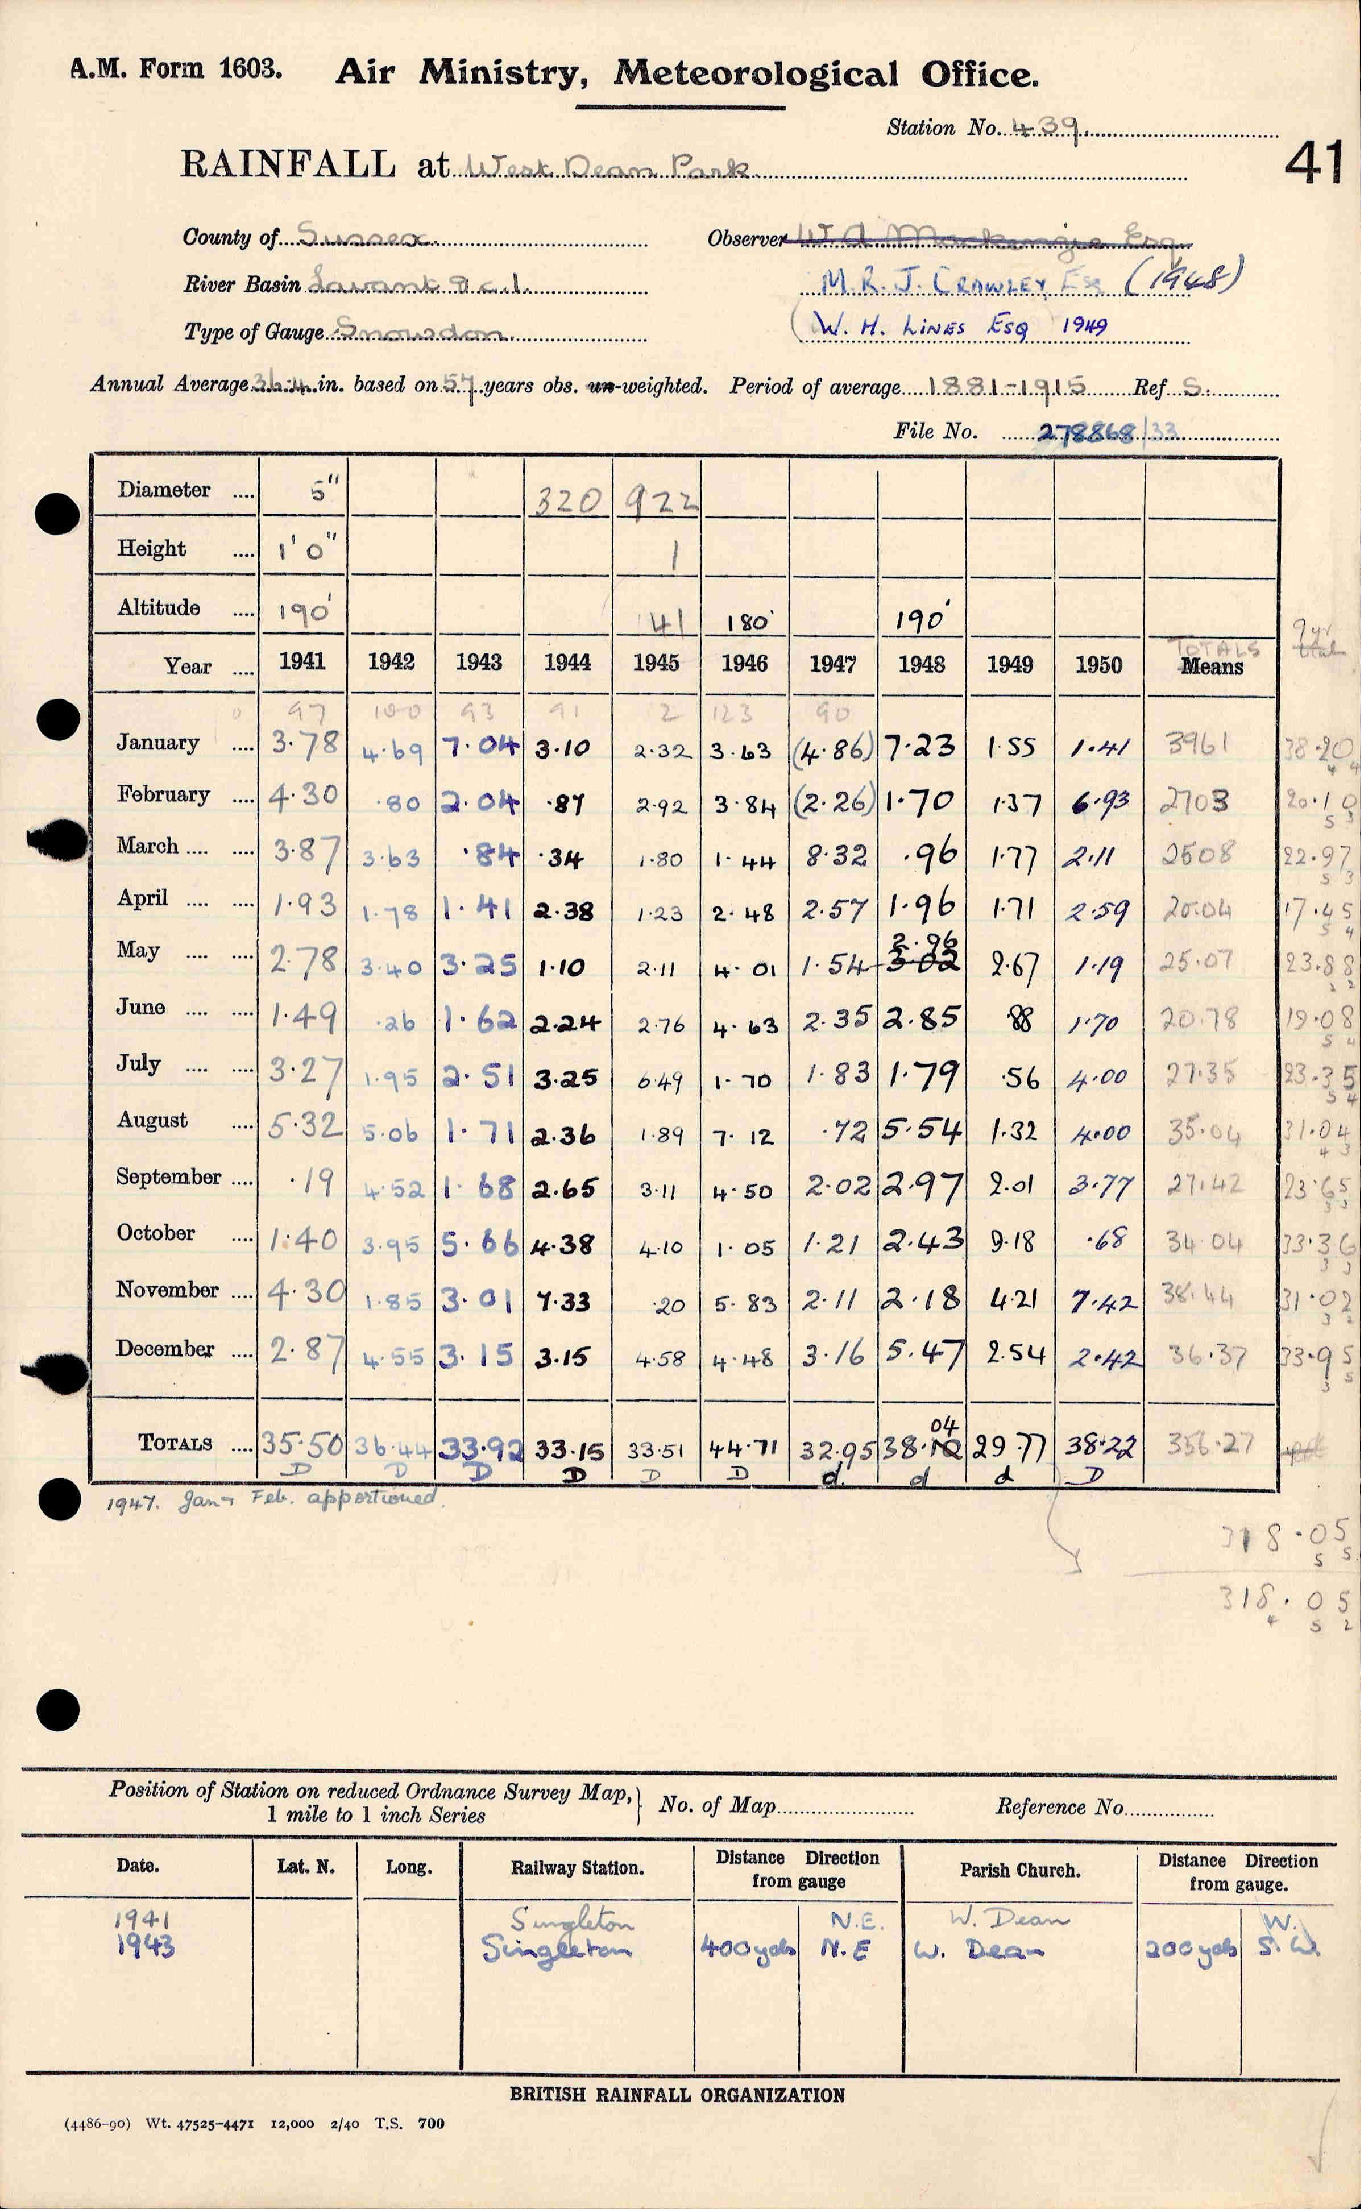 A.M. Form 1603. Air Ministry, Meteorological Office.
Station No. 439.
41
RAINFALL at West Dean Park
County of Sussex Observer W. A. Mackenzie Esq.
River Basin Lavant &c. 1. M. R. J. CRAWLEY, Esq (1948)
Type of Gauge Snowdon (W. H. LINES ESQ 1949
Annual Average 36.4 in. based on 57 years obs. un-weighted. Period of average 1881-1915 Ref S.
File No. 278868/33
Diameter .... 5" 320 922
Height .... 1' 0" 1
Altitude .... 190' 141 180' 190'
9 yr total
TOTALS
Year .... 1941 1942 1943 1944 1945 1946 1947 1948 1949 1950 Means
0 97 100 93 91 2 123 90
January .... 3.78 4.69 7.04 3.10 2.32 3.63 (4.86) 7.23 1.55 1.41 3961 38.20
February .... 4.30 .80 2.04 .87 2.92 3.84 (2.26) 1.70 1.37 6.93 2703 20.10
March .... .... 3.87 3.63 .84 .34 1.80 1.44 8.32 .96 1.77 2.11 2508 22.97
April .... .... 1.93 1.78 1.41 2.38 1.23 2.48 2.57 1.96 1.71 2.59 20.04 17.45
2.96
May .... .... 2.78 3.40 3.25 1.10 2.11 4.01 1.54 3.02 2.67 1.19 25.07 23.88
June .... .... 1.49 .26 1.62 2.24 2.76 4.63 2.35 2.85 .88 1.70 20.78 19.08
July .... .... 3.27 1.95 2.51 3.25 6.49 1.70 1.83 1.79 .56 4.00 27.35 23.35
August .... 5.32 5.06 1.71 2.36 1.89 7.12 .72 5.54 1.32 4.00 35.04 31.04
September .... .19 4.52 1.68 2.65 3.11 4.50 2.02 2.97 2.01 3.77 27.42 23.65
October .... 1.40 3.95 5.66 4.38 4.10 1.05 1.21 2.43 9.18 .68 34.04 33.36
November .... 4.30 1.85 3.01 7.33 .20 5.83 2.11 2.18 4.21 7.42 38.44 31.02
December .... 2.87 4.55 3.15 3.15 4.58 4.48 3.16 5.47 2.54 2.42 36.37 33.95
04
TOTALS .... 35.50 36.44 33.92 33.15 33.51 44.71 32.95 38.10 29.77 38.22 356.27
D D D D D D d d d D
1947. Jan & Feb. apportioned.
318.05
318.05
Position of Station on reduced Ordnance Survey Map, } No. of Map Reference No.
1 mile to 1 inch Series
Date. Lat. N. Long. Railway Station. Distance Direction from gauge Parish Church. Distance Direction from gauge.
1941 Singleton N.E. W. Dean W.
1943 Singleton 400 yds N.E W. Dean 200 yds S.W.
BRITISH RAINFALL ORGANIZATION
(4486-90) Wt. 47525-4471 12,000 2/40 T.S. 700